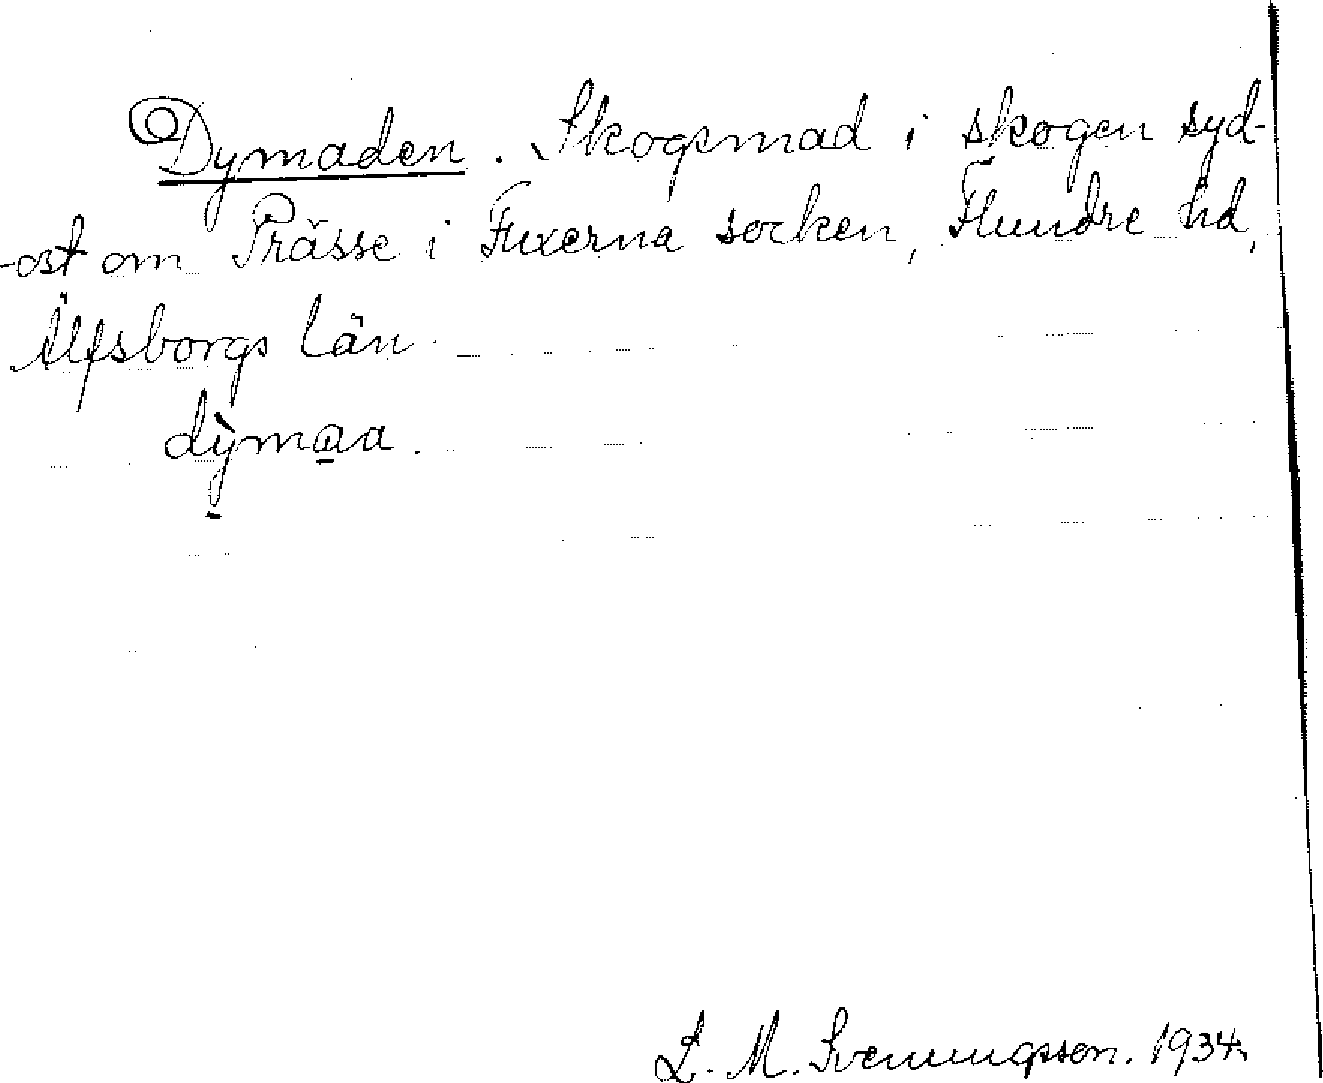 Dymaden. Skogsmad i skogen syd-
-ost om Prässe i Fuxerna socken, Flundre hd,
Älfsborgs län.
dỳmaa.
L. M. Svenungsson. 1934.